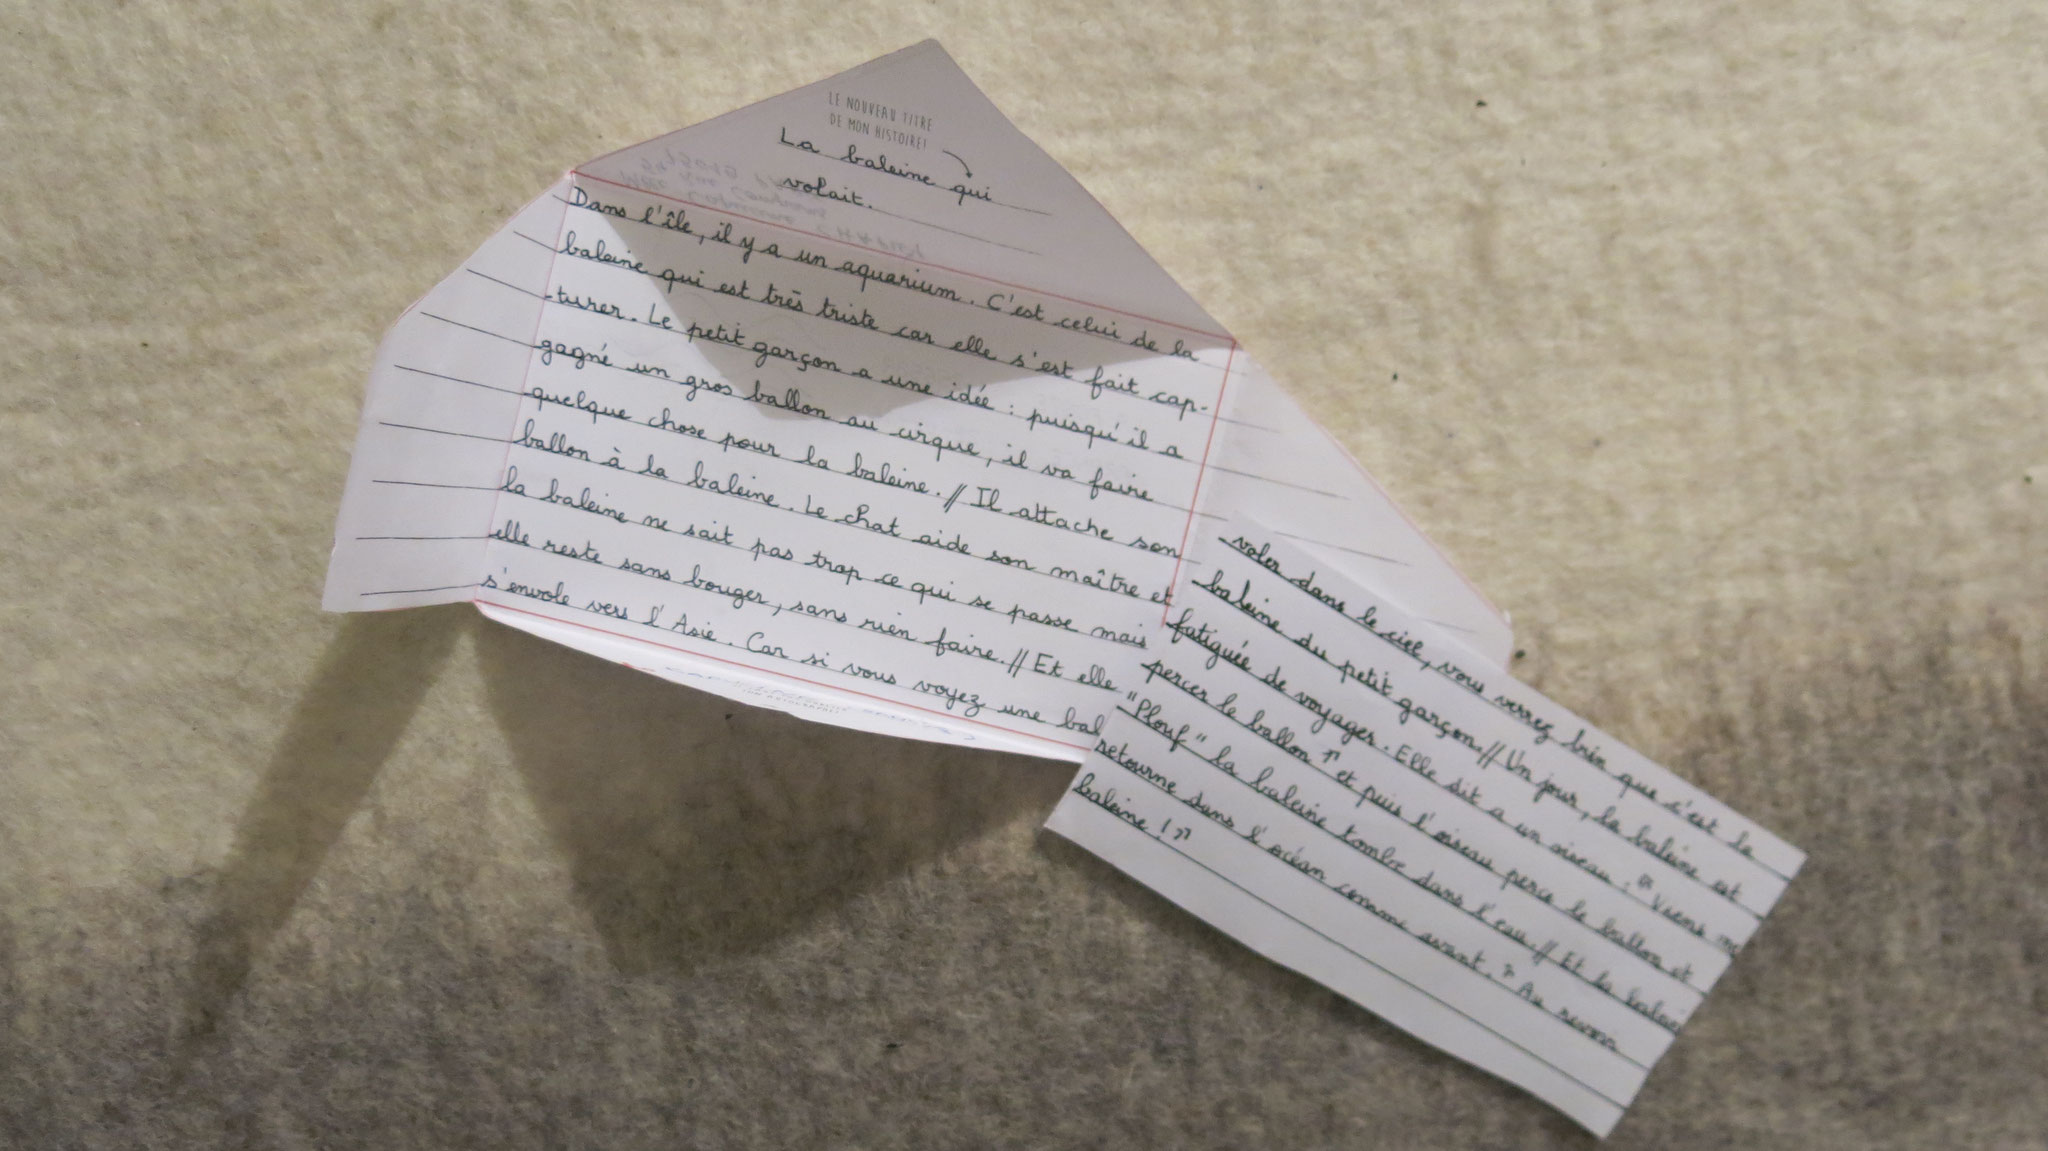 LE NOUVEAU TITRE
DE MON HISTOIRE!
La baleine qui
volait.
Dans l'île, il y a un aquarium. C'est celui de la
baleine qui est très triste car elle s'est fait cap-
-turer. Le petit garçon a une idée : puisqu'il a
gagné un gros ballon au cirque, il va faire
quelque chose pour la baleine. // Il attache son
ballon à la baleine. Le chat aide son maître et
la baleine ne sait pas trop ce qui se passe mais
elle reste sans bouger, sans rien faire. // Et elle
s'envole vers l'Asie. Car si vous voyez une bal
voler dans le ciel, vous verrez bien que c'est la
baleine du petit garçon. // Un jour, la baleine est
fatiguée de voyager. Elle dit a un oiseau : " Viens me
percer le ballon " et puis l'oiseau perce le ballon et
"Plouf" la baleine tombe dans l'eau. // Et la baleine
retourne dans l'océan comme avant. " Au revoir
baleine ! "